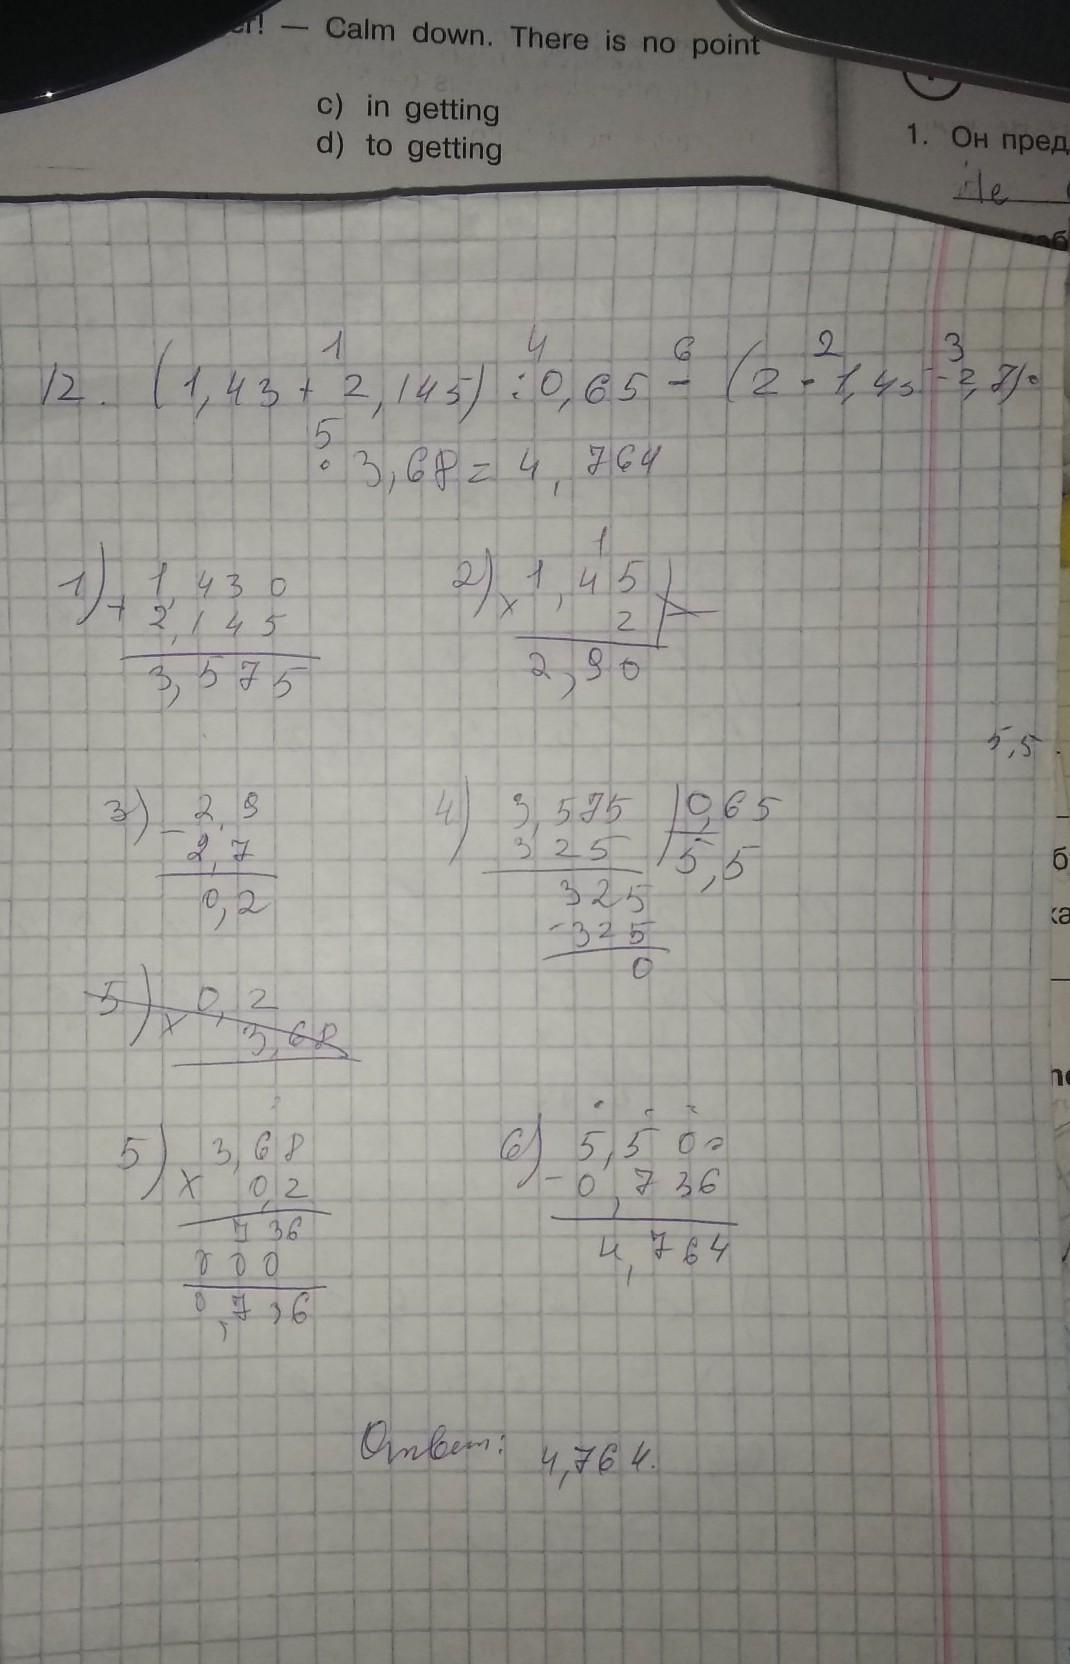 er! — Calm down. There is no point
c) in getting
d) to getting
1. Он пред
Не
1 4 6 2 3
12. (1,43 + 2,145) : 0,65 - (2 · 1,45 - 2,7) ·
5
· 3,68 = 4,764
1) 1,430
+ 2,145
3,575
2) 1
1,45
× 2
2,90
5,5
3) 2,9
- 2,7
0,2
4) 3,575 | 0,65
325 5,5
325
-325
0
5) 0,2
× 3,68
5) 3,68
× 0,2
736
000
0,736
6) 5,500
- 0,736
4,764
Ответ: 4,764.